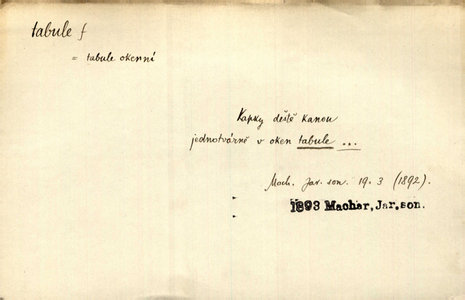 tabule f
= tabule okenní
Kapky deště kanou
jednotvárně v oken tabule ...
Mach. Jar. son. 19.3 (1892).
1893 Machar, Jar.son.